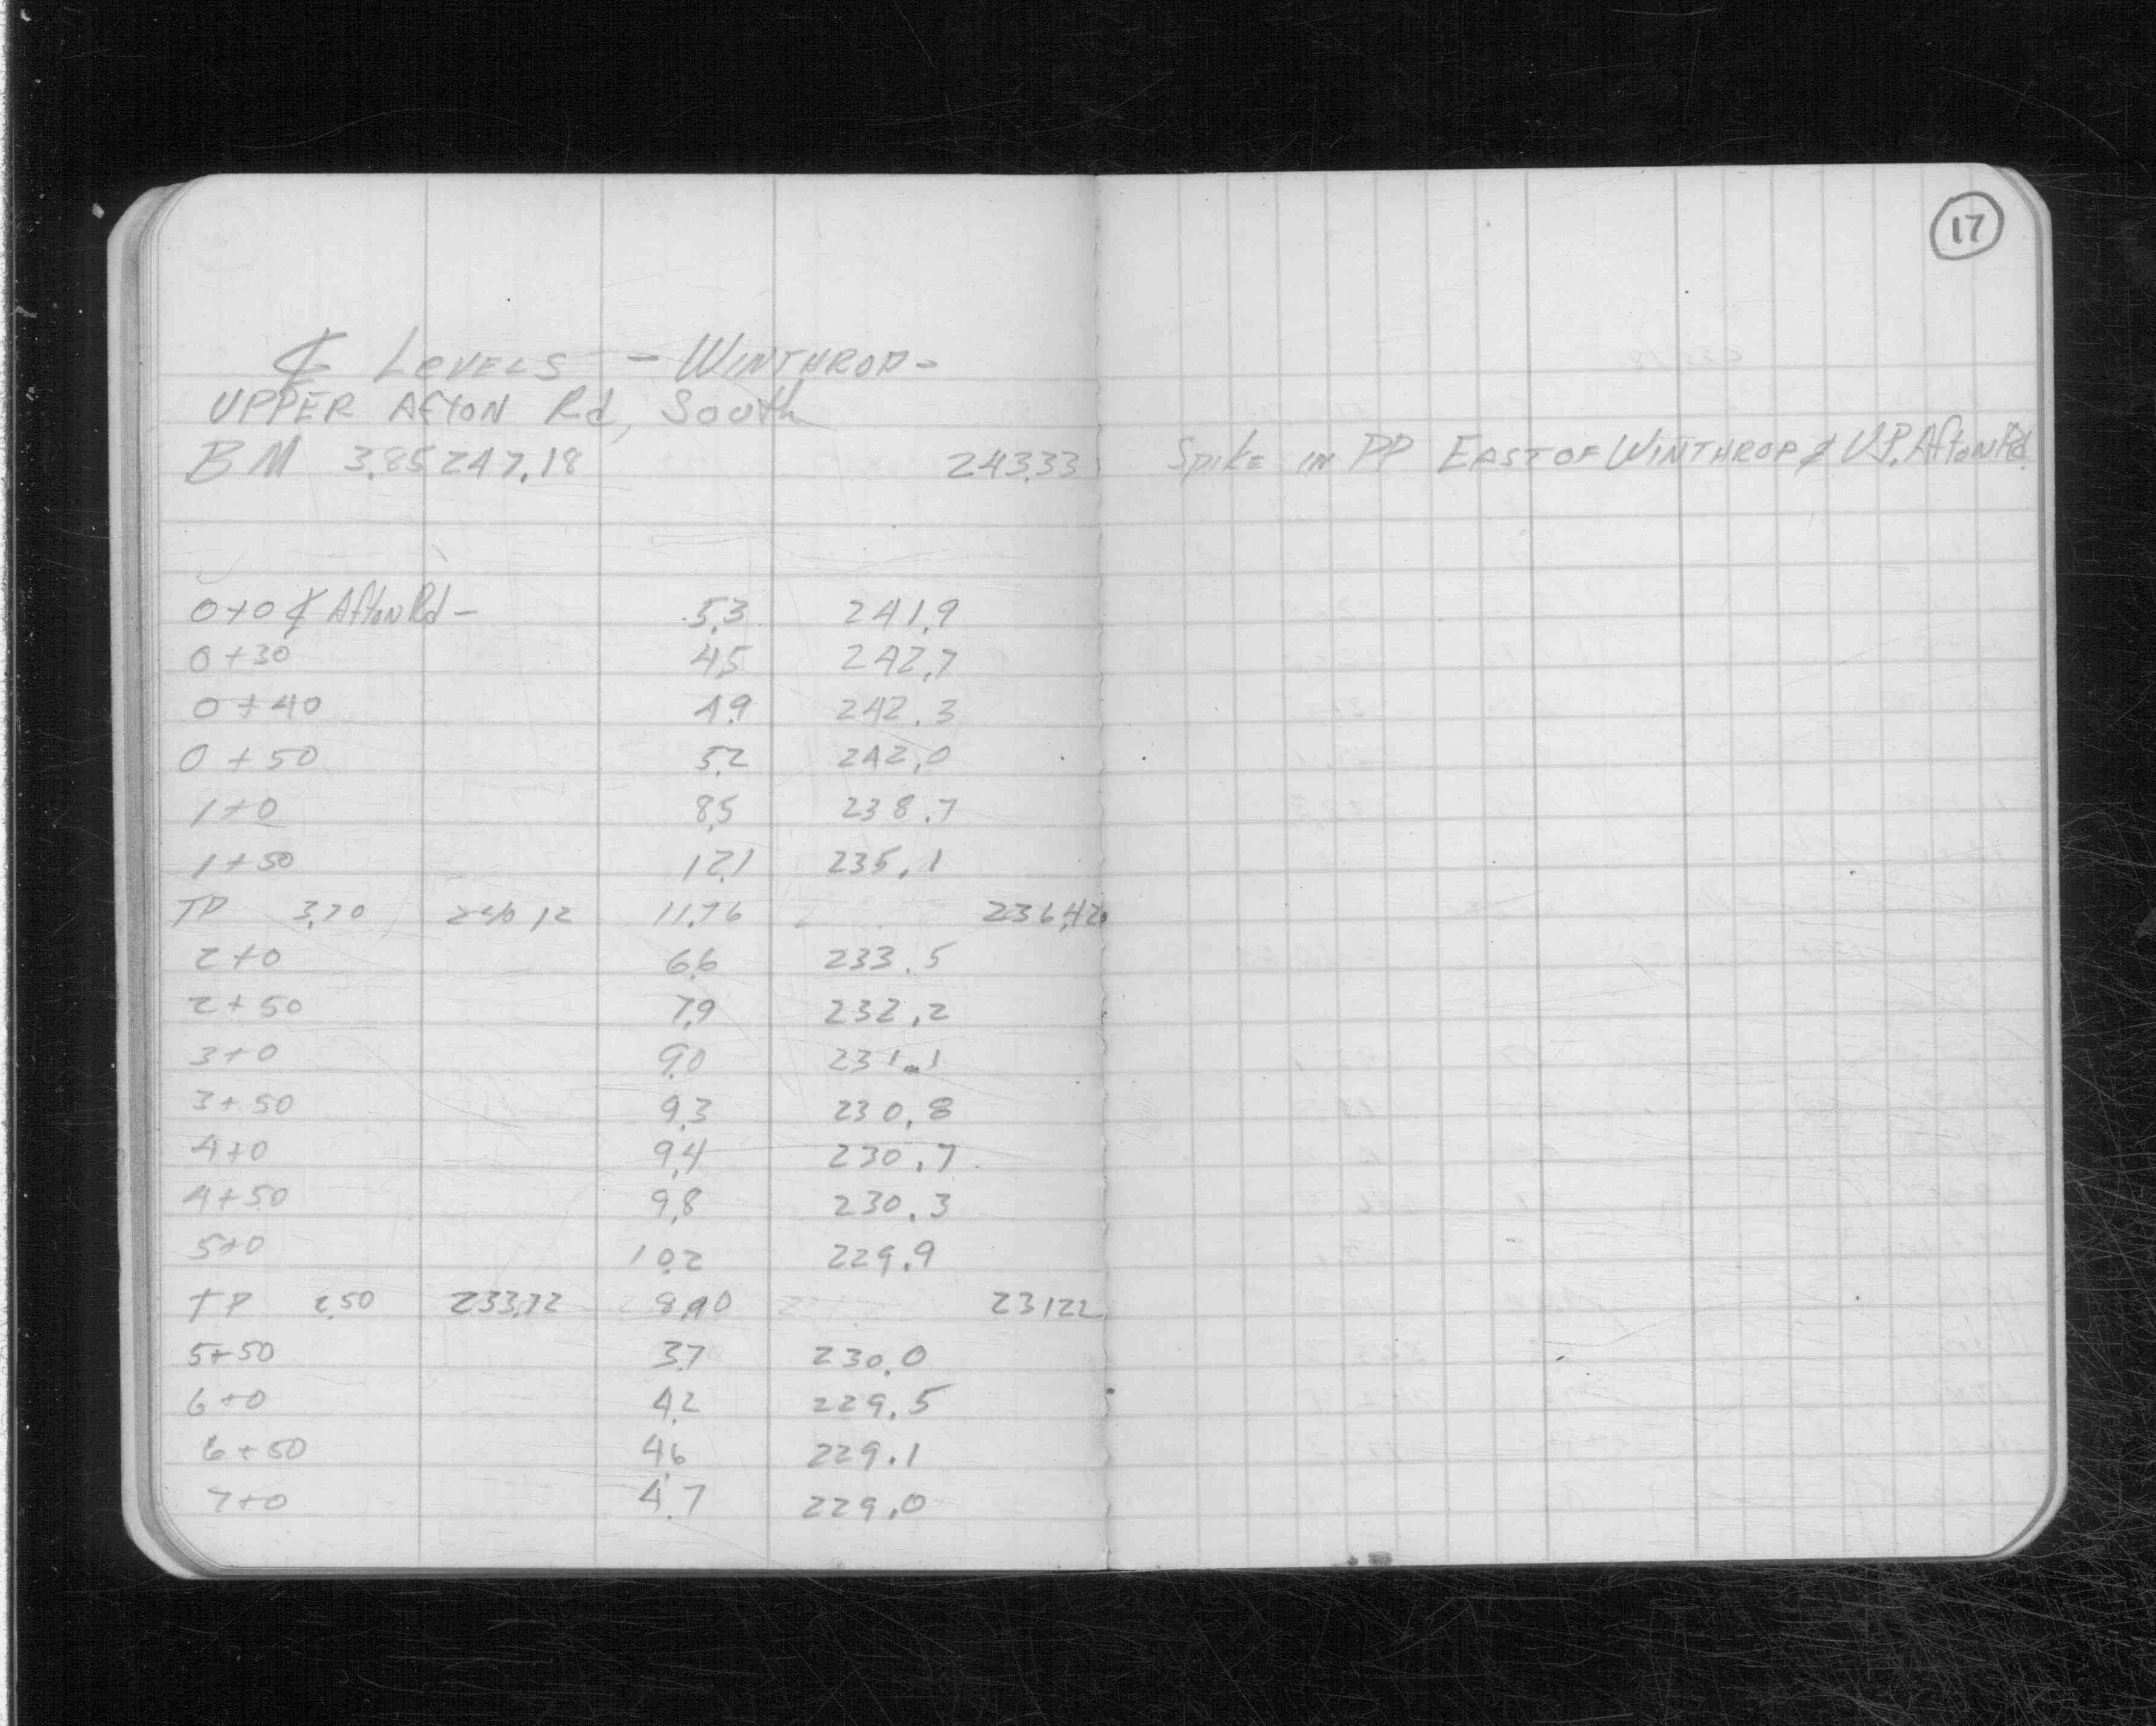 17
₵ LEVELS - WINTHROP -
UPPER AFTON Rd, South
BM 3.85 247.18 243.33 Spike IN PP EAST OF WINTHROP & UP. Afton Rd.
0+0 ₵ Afton Rd - 5.3 241.9
0+30 4.5 242.7
0+40 4.9 242.3
0+50 5.2 242.0
1+0 8.5 238.7
1+50 12.1 235.1
TP 3.70 240.12 11.76 236.42
2+0 6.6 233.5
2+50 7.9 232.2
3+0 9.0 231.1
3+50 9.3 230.8
4+0 9.4 230.7
4+50 9.8 230.3
5+0 10.2 229.9
TP 2.50 233.72 8.90 231.22
5+50 3.7 230.0
6+0 4.2 229.5
6+50 4.6 229.1
7+0 4.7 229.0